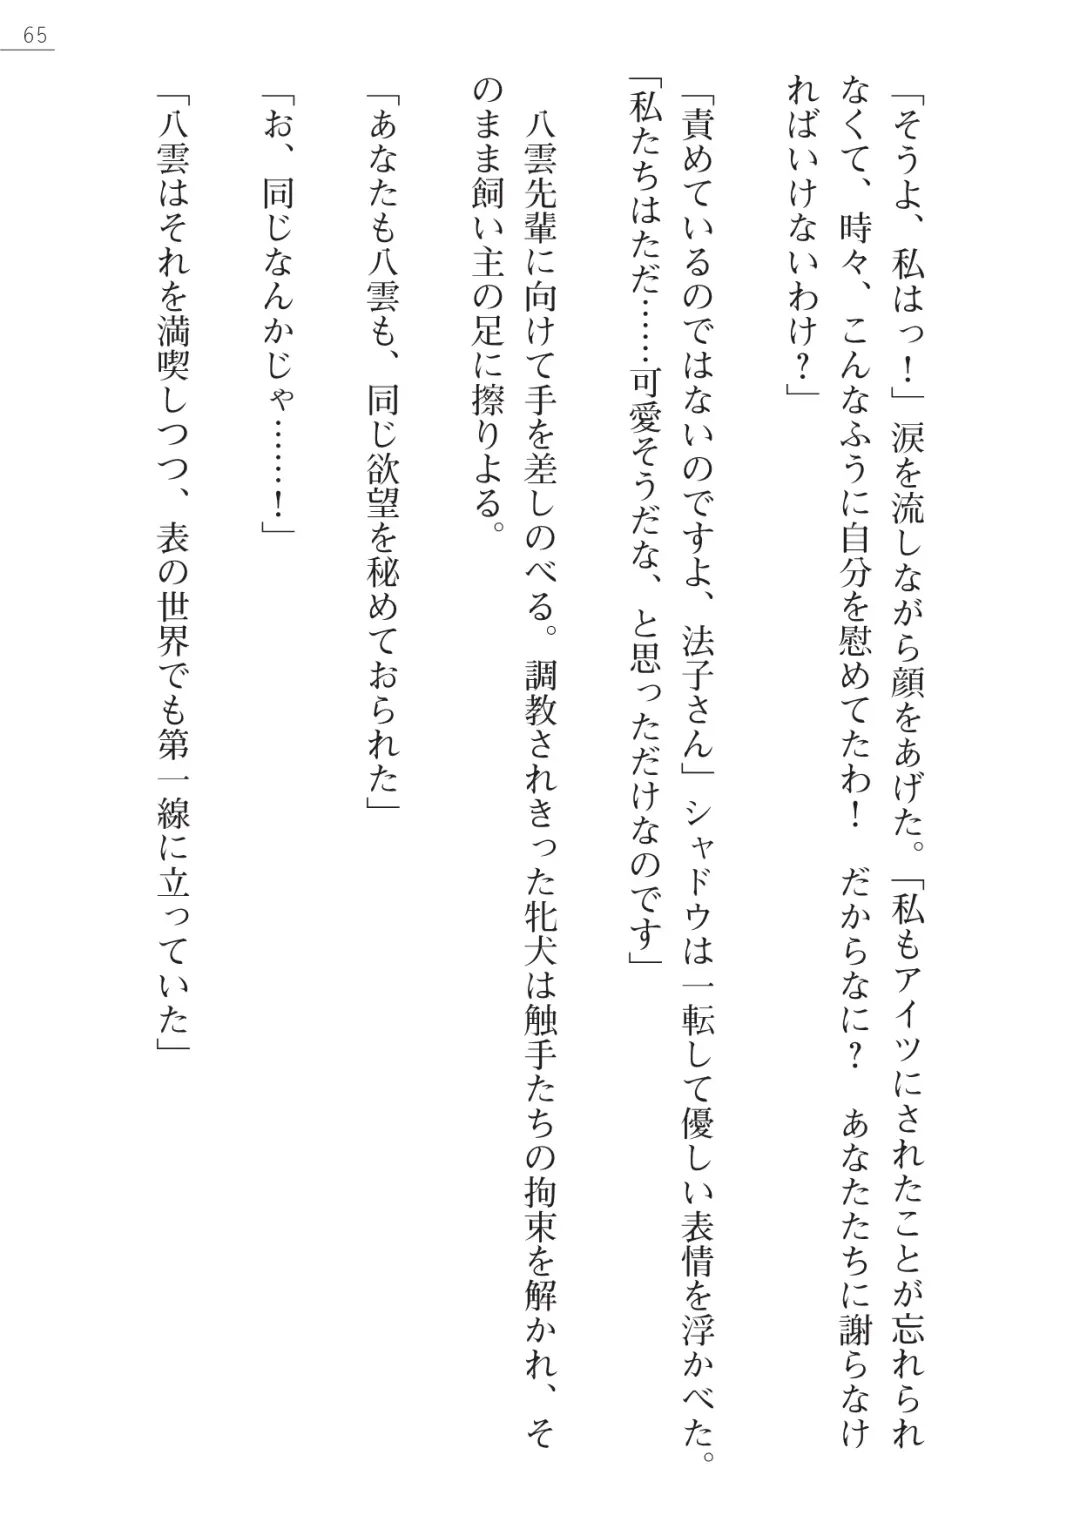 65
「そうよ、私はっ！」涙を流しながら顔をあげた。「私もアイツにされたことが忘れられ
なくて、時々、こんなふうに自分を慰めてたわ！　だからなに？　あなたたちに謝らなけ
ればいけないわけ？」
「責めているのではないのですよ、法子さん」シャドウは一転して優しい表情を浮かべた。
「私たちはただ……可愛そうだな、と思っただけなのです」
八雲先輩に向けて手を差しのべる。調教されきった牝犬は触手たちの拘束を解かれ、そ
のまま飼い主の足に擦りよる。
「あなたも八雲も、同じ欲望を秘めておられた」
「お、同じなんかじゃ……！」
「八雲はそれを満喫しつつ、表の世界でも第一線に立っていた」